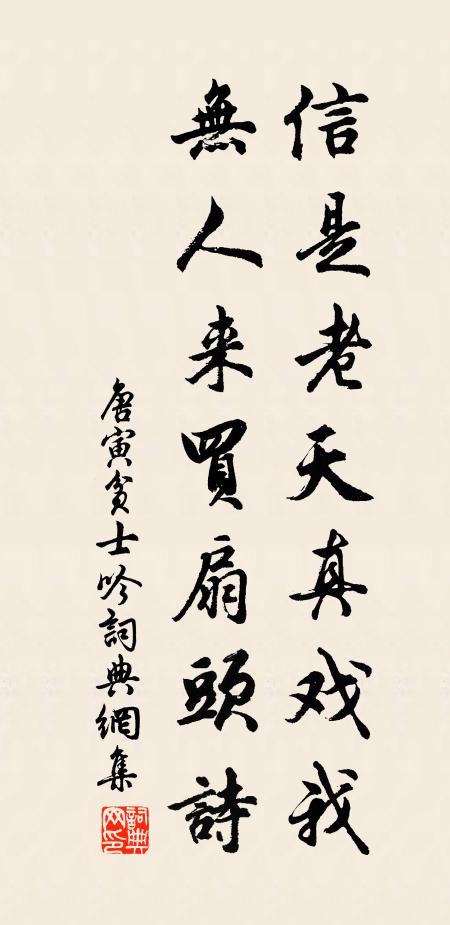 信是老天真戏我
無人来買扇頭詩
唐寅貧士吟詞典網集
詞典網印